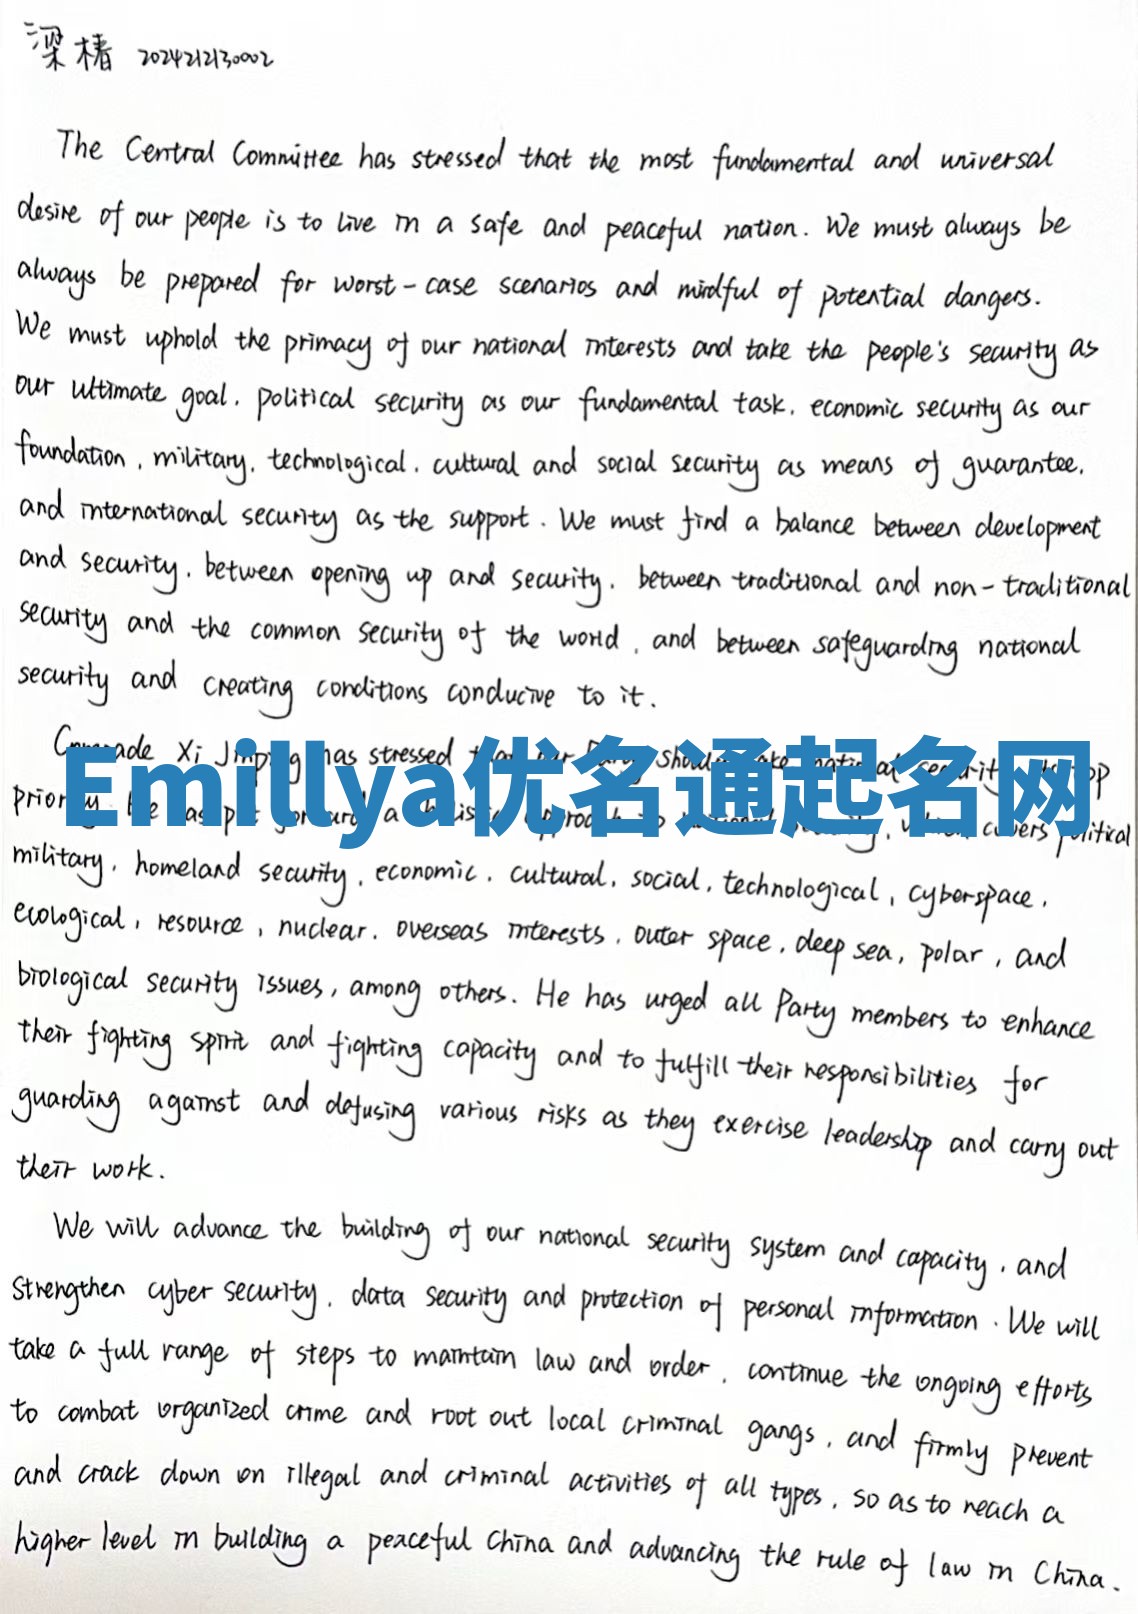 梁椿 2024212130002
The Central Committee has stressed that the most fundamental and universal
desire of our people is to live in a safe and peaceful nation. We must always be
always be prepared for worst-case scenarios and mindful of potential dangers.
We must uphold the primacy of our national interests and take the people's security as
our ultimate goal, political security as our fundamental task, economic security as our
foundation, military, technological, cultural and social security as means of guarantee,
and international security as the support. We must find a balance between development
and security, between opening up and security, between traditional and non-traditional
security and the common security of the world, and between safeguarding national
security and creating conditions conducive to it.
Comrade Xi Jinping has stressed that our Party should take national security top
Emillya优名通起名网
priority. He has put forward a holistic approach to national security, which covers political
military, homeland security, economic, cultural, social, technological, cyberspace,
ecological, resource, nuclear, overseas interests, outer space, deep sea, polar, and
biological security issues, among others. He has urged all Party members to enhance
their fighting spirit and fighting capacity and to fulfill their responsibilities for
guarding against and defusing various risks as they exercise leadership and carry out
their work.
We will advance the building of our national security system and capacity, and
strengthen cyber security, data security and protection of personal information. We will
take a full range of steps to maintain law and order, continue the ongoing efforts
to combat organized crime and root out local criminal gangs, and firmly prevent
and crack down on illegal and criminal activities of all types, so as to reach a
higher level in building a peaceful China and advancing the rule of law in China.